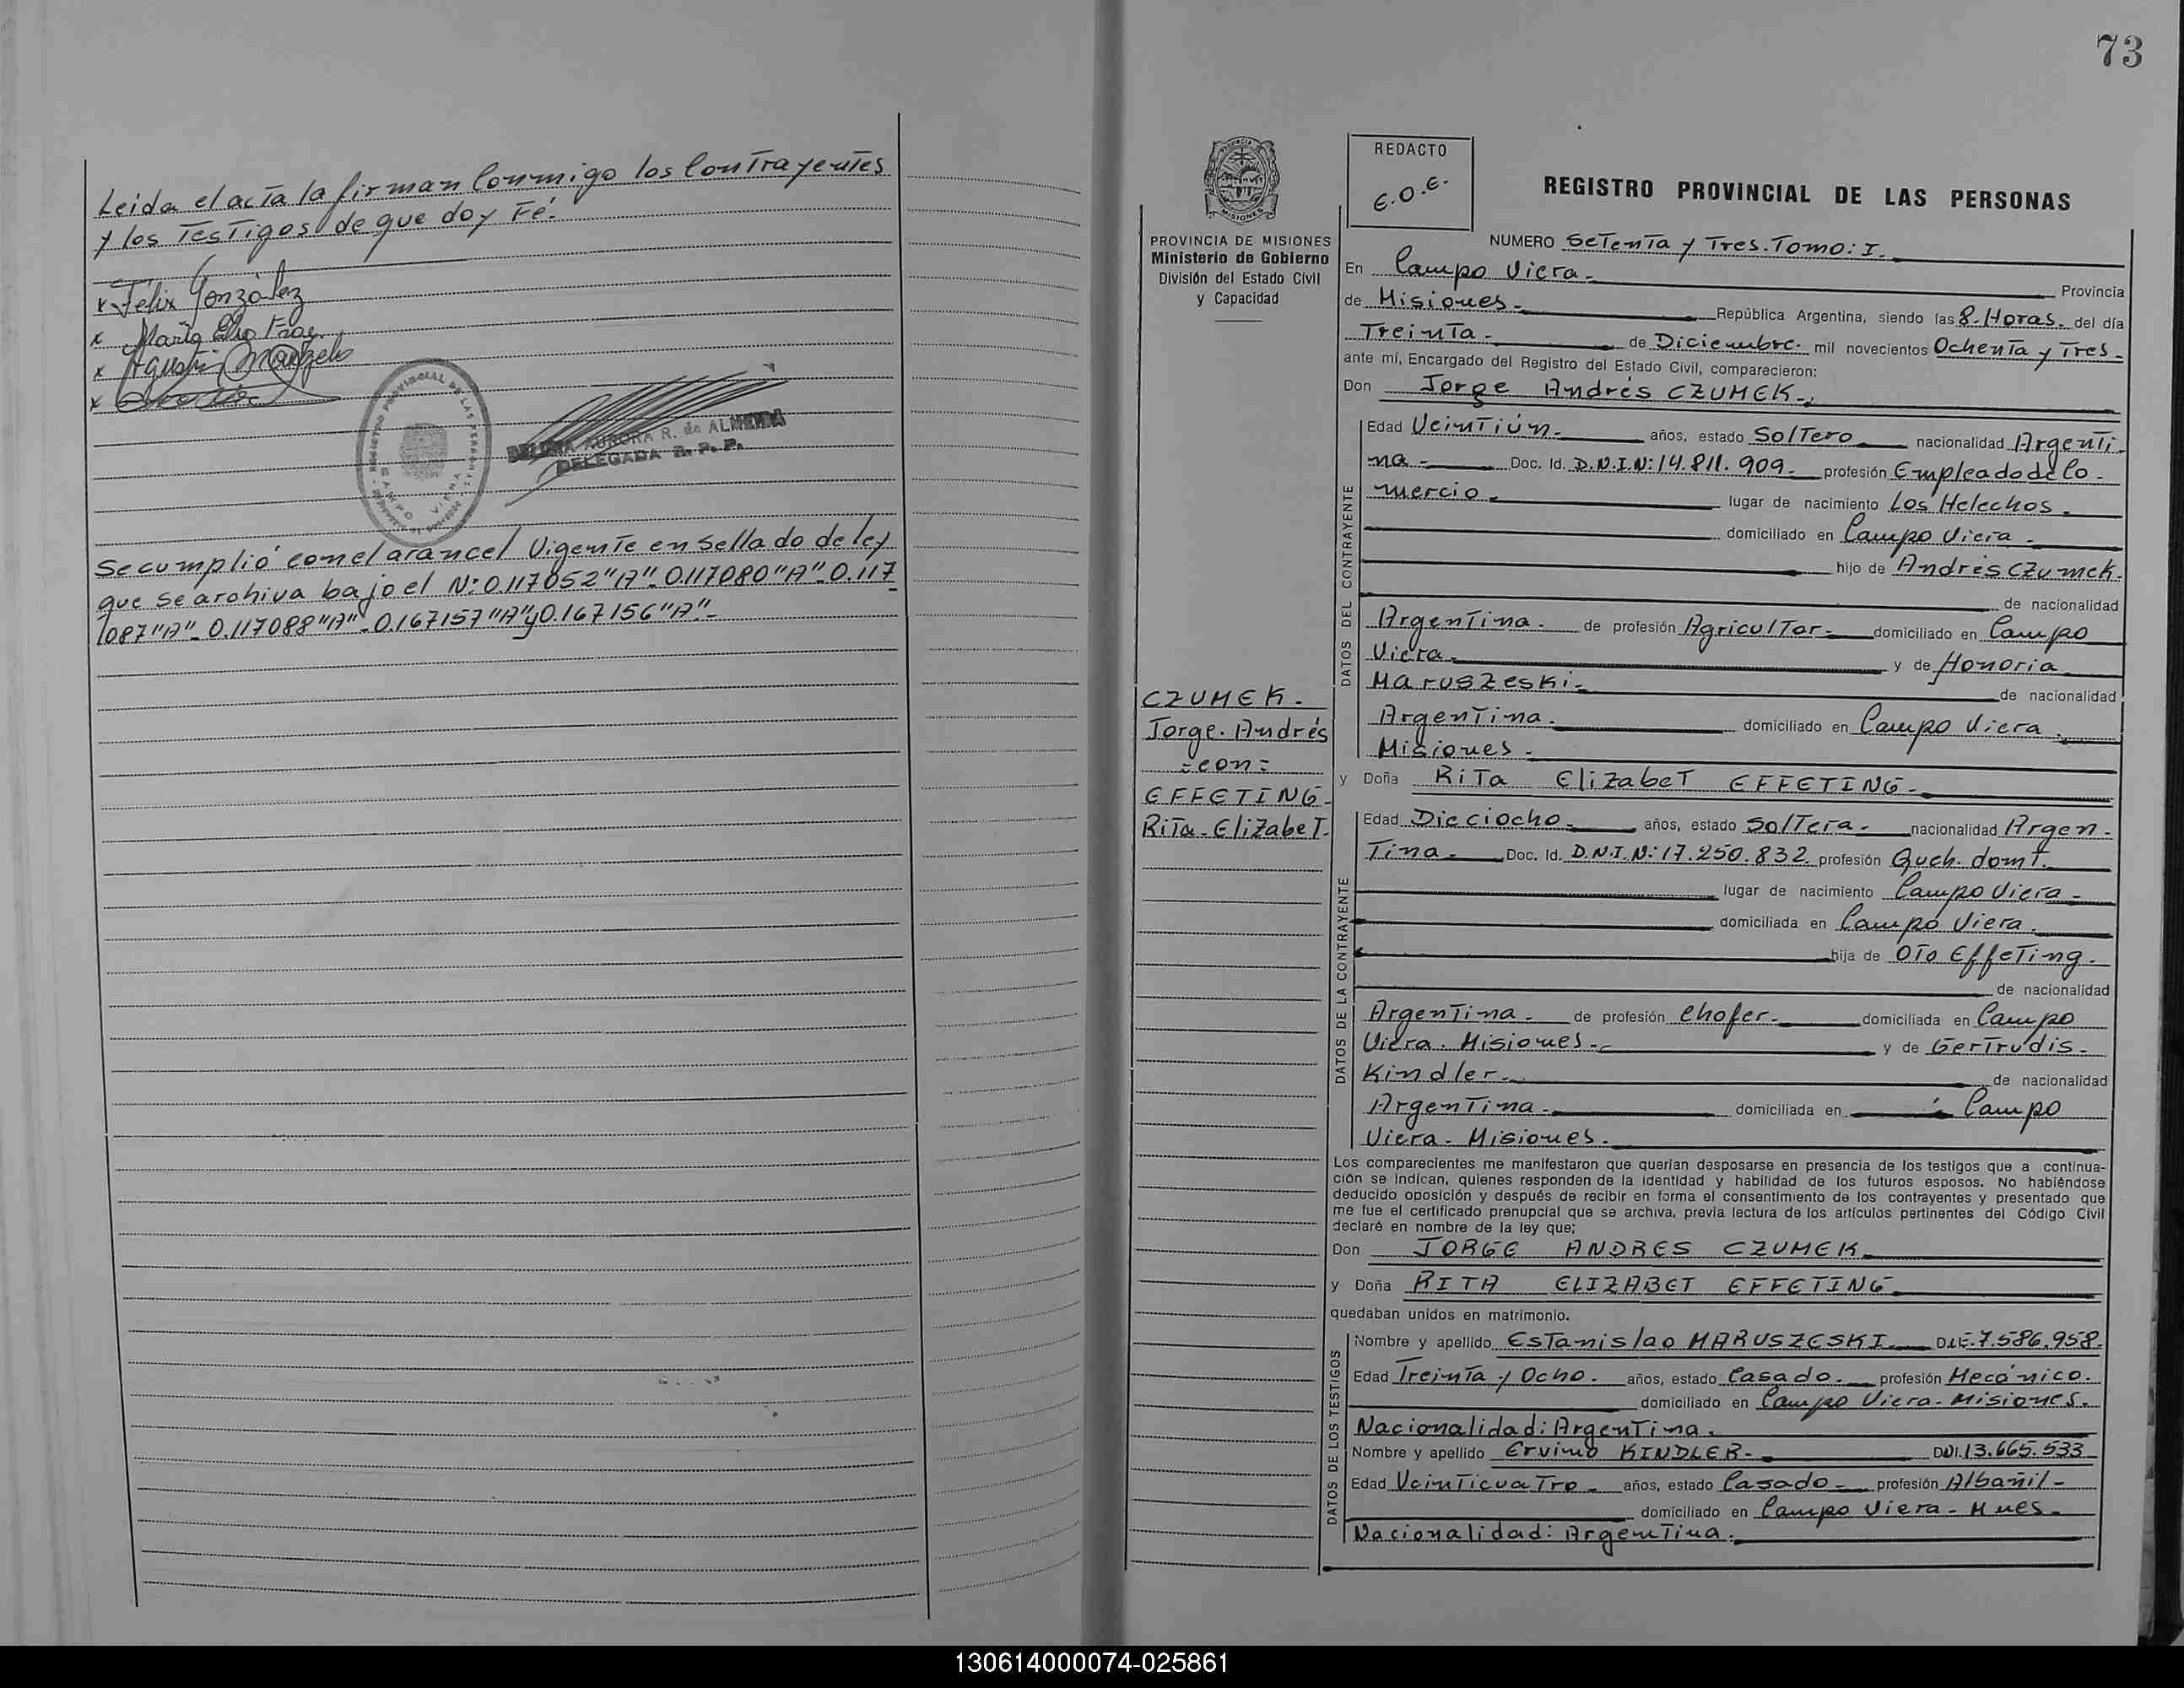 Leida el acta la firman Conmigo los Contrayentes
y los Testigos de que doy Fé.
x Félix González
x María
x Agustín
x
AURORA R. de ALMEIDA
DELEGADA R. P. P.
REGISTRO PROVINCIAL DE LAS PERSONAS
CAMPO VIERA
Se cumplió con el arancel Vigente en Sellado de ley
que se archiva bajo el N: 0.117052 "A"- 0.117080 "A"- 0.117
087 "A"- 0.117088 "A"- 0.167157 "A" y 0.167156 "A".-
73
REDACTO
E.O.E.
REGISTRO PROVINCIAL DE LAS PERSONAS
PROVINCIA DE MISIONES
Ministerio de Gobierno
División del Estado Civil
y Capacidad
CZUMEK.
Jorge. Andrés
=con=
EFFETING-
Rita-Elizabet.
NUMERO Setenta y Tres. Tomo: I.
En Campo Viera.- Provincia
de Misiones.- República Argentina, siendo las 8. Horas. del día
Treinta.- de Diciembre. mil novecientos Ochenta y Tres.-
ante mí, Encargado del Registro del Estado Civil, comparecieron:
Don Jorge Andrés CZUMEK.-
DATOS DEL CONTRAYENTE
Edad Veintiún.- años, estado Soltero nacionalidad Argenti-
na.- Doc. Id. D.N.I.N: 14.811.909.- profesión Empleado de Co-
mercio.- lugar de nacimiento Los Helechos.
domiciliado en Campo Viera.-
hijo de Andrés Czumek.
de nacionalidad
Argentina.- de profesión Agricultor.- domiciliado en Campo
Viera.- y de Honoria
Maruszeski.- de nacionalidad
Argentina.- domiciliado en Campo Viera.
Misiones.-
y Doña Rita Elizabet EFFETING.-
DATOS DE LA CONTRAYENTE
Edad Dieciocho.- años, estado Soltera.- nacionalidad Argen-
tina.- Doc. Id. D.N.I.N: 17.250.832 profesión Queh. domt.
lugar de nacimiento Campo Viera-
domiciliada en Campo Viera.
hija de Oto Effeting.
de nacionalidad
Argentina.- de profesión Chofer.- domiciliada en Campo
Viera. Misiones.- y de Gertrudis.-
Kindler.- de nacionalidad
Argentina.- domiciliada en Campo
Viera. Misiones.
Los comparecientes me manifestaron que querían desposarse en presencia de los testigos que a continua-
ción se indican, quienes responden de la identidad y habilidad de los futuros esposos. No habiéndose
deducido oposición y después de recibir en forma el consentimiento de los contrayentes y presentado que
me fue el certificado prenupcial que se archiva, previa lectura de los artículos pertinentes del Código Civil
declaré en nombre de la ley que;
Don JORGE ANDRES CZUMEK
y Doña RITA ELIZABET EFFETING
quedaban unidos en matrimonio.
DATOS DE LOS TESTIGOS
Nombre y apellido Estanislao MARUSZESKI. D.I.E. 7.586.958.
Edad Treinta y Ocho. años, estado Casado. profesión Mecánico.
domiciliado en Campo Viera. Misiones.
Nacionalidad: Argentina.
Nombre y apellido Ervino KINDLER.- DNI. 13.665.533
Edad Veinticuatro- años, estado Casado- profesión Albañil-
domiciliado en Campo Viera- Mnes-
Nacionalidad: Argentina.
130614000074-025861